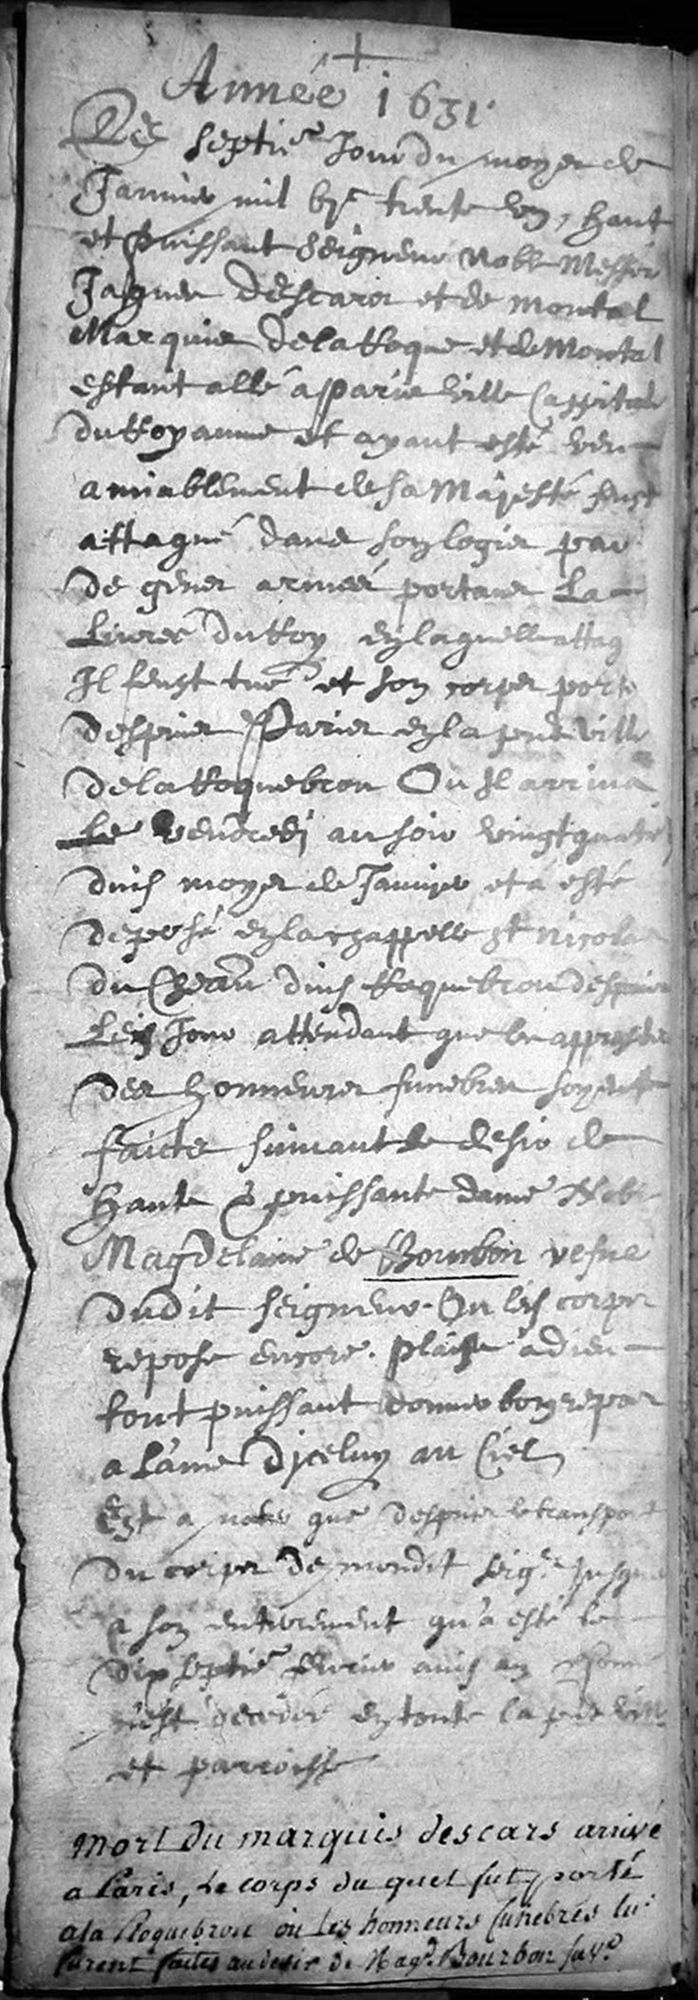 Année 1631
Le septie Jour du moys de
Janvier mil vjc trente ung, hault
et puissant Seigneur noble Messire
Jaques Descars et de Montal
Marquis de la Roque et de Montal
estant allé a Paris ville Cappitale
du Royaume et ayant esté veu
amiablement de sa Majesté feust
attaqué dans son logis par
de gens armés portans La
Livrée du Roy en laquelle attaq
Il feust tué et son corps porté
despuis Paris en la pnte ville
de la Roquebrou Ou Il arriva
Le vendredi au soir vingt quatre
dud moys de Janvier et a esté
depposé en la chappelle St Nicolas
du Chau dud Roquebrou despuis
Led Jour attendant que les apprestz
des honneurs funebres soyent
faicts suivant le desir de
Haute & puissante dame Noble
Magdelaine de Bourbon vefve
dudit seigneur. Ou led corps
repose encore. Plaise a dieu
tout puissant donner bon repos
a L'ame d'jceluy au Ciel
Est a noter que despuis le transport
du corps de mondit seigr Jusques
a son enterrement qu'a esté le
dix septie fevrier aud an
n'est decedé en toute la pnte ville
et parroisse
Mort du marquis descars arrivé
a Paris, Le corps du quel fut porté
a la Roquebrou ou Les honneurs funebres lui
furent faites au desir de Magd. Bourbon sa v.e